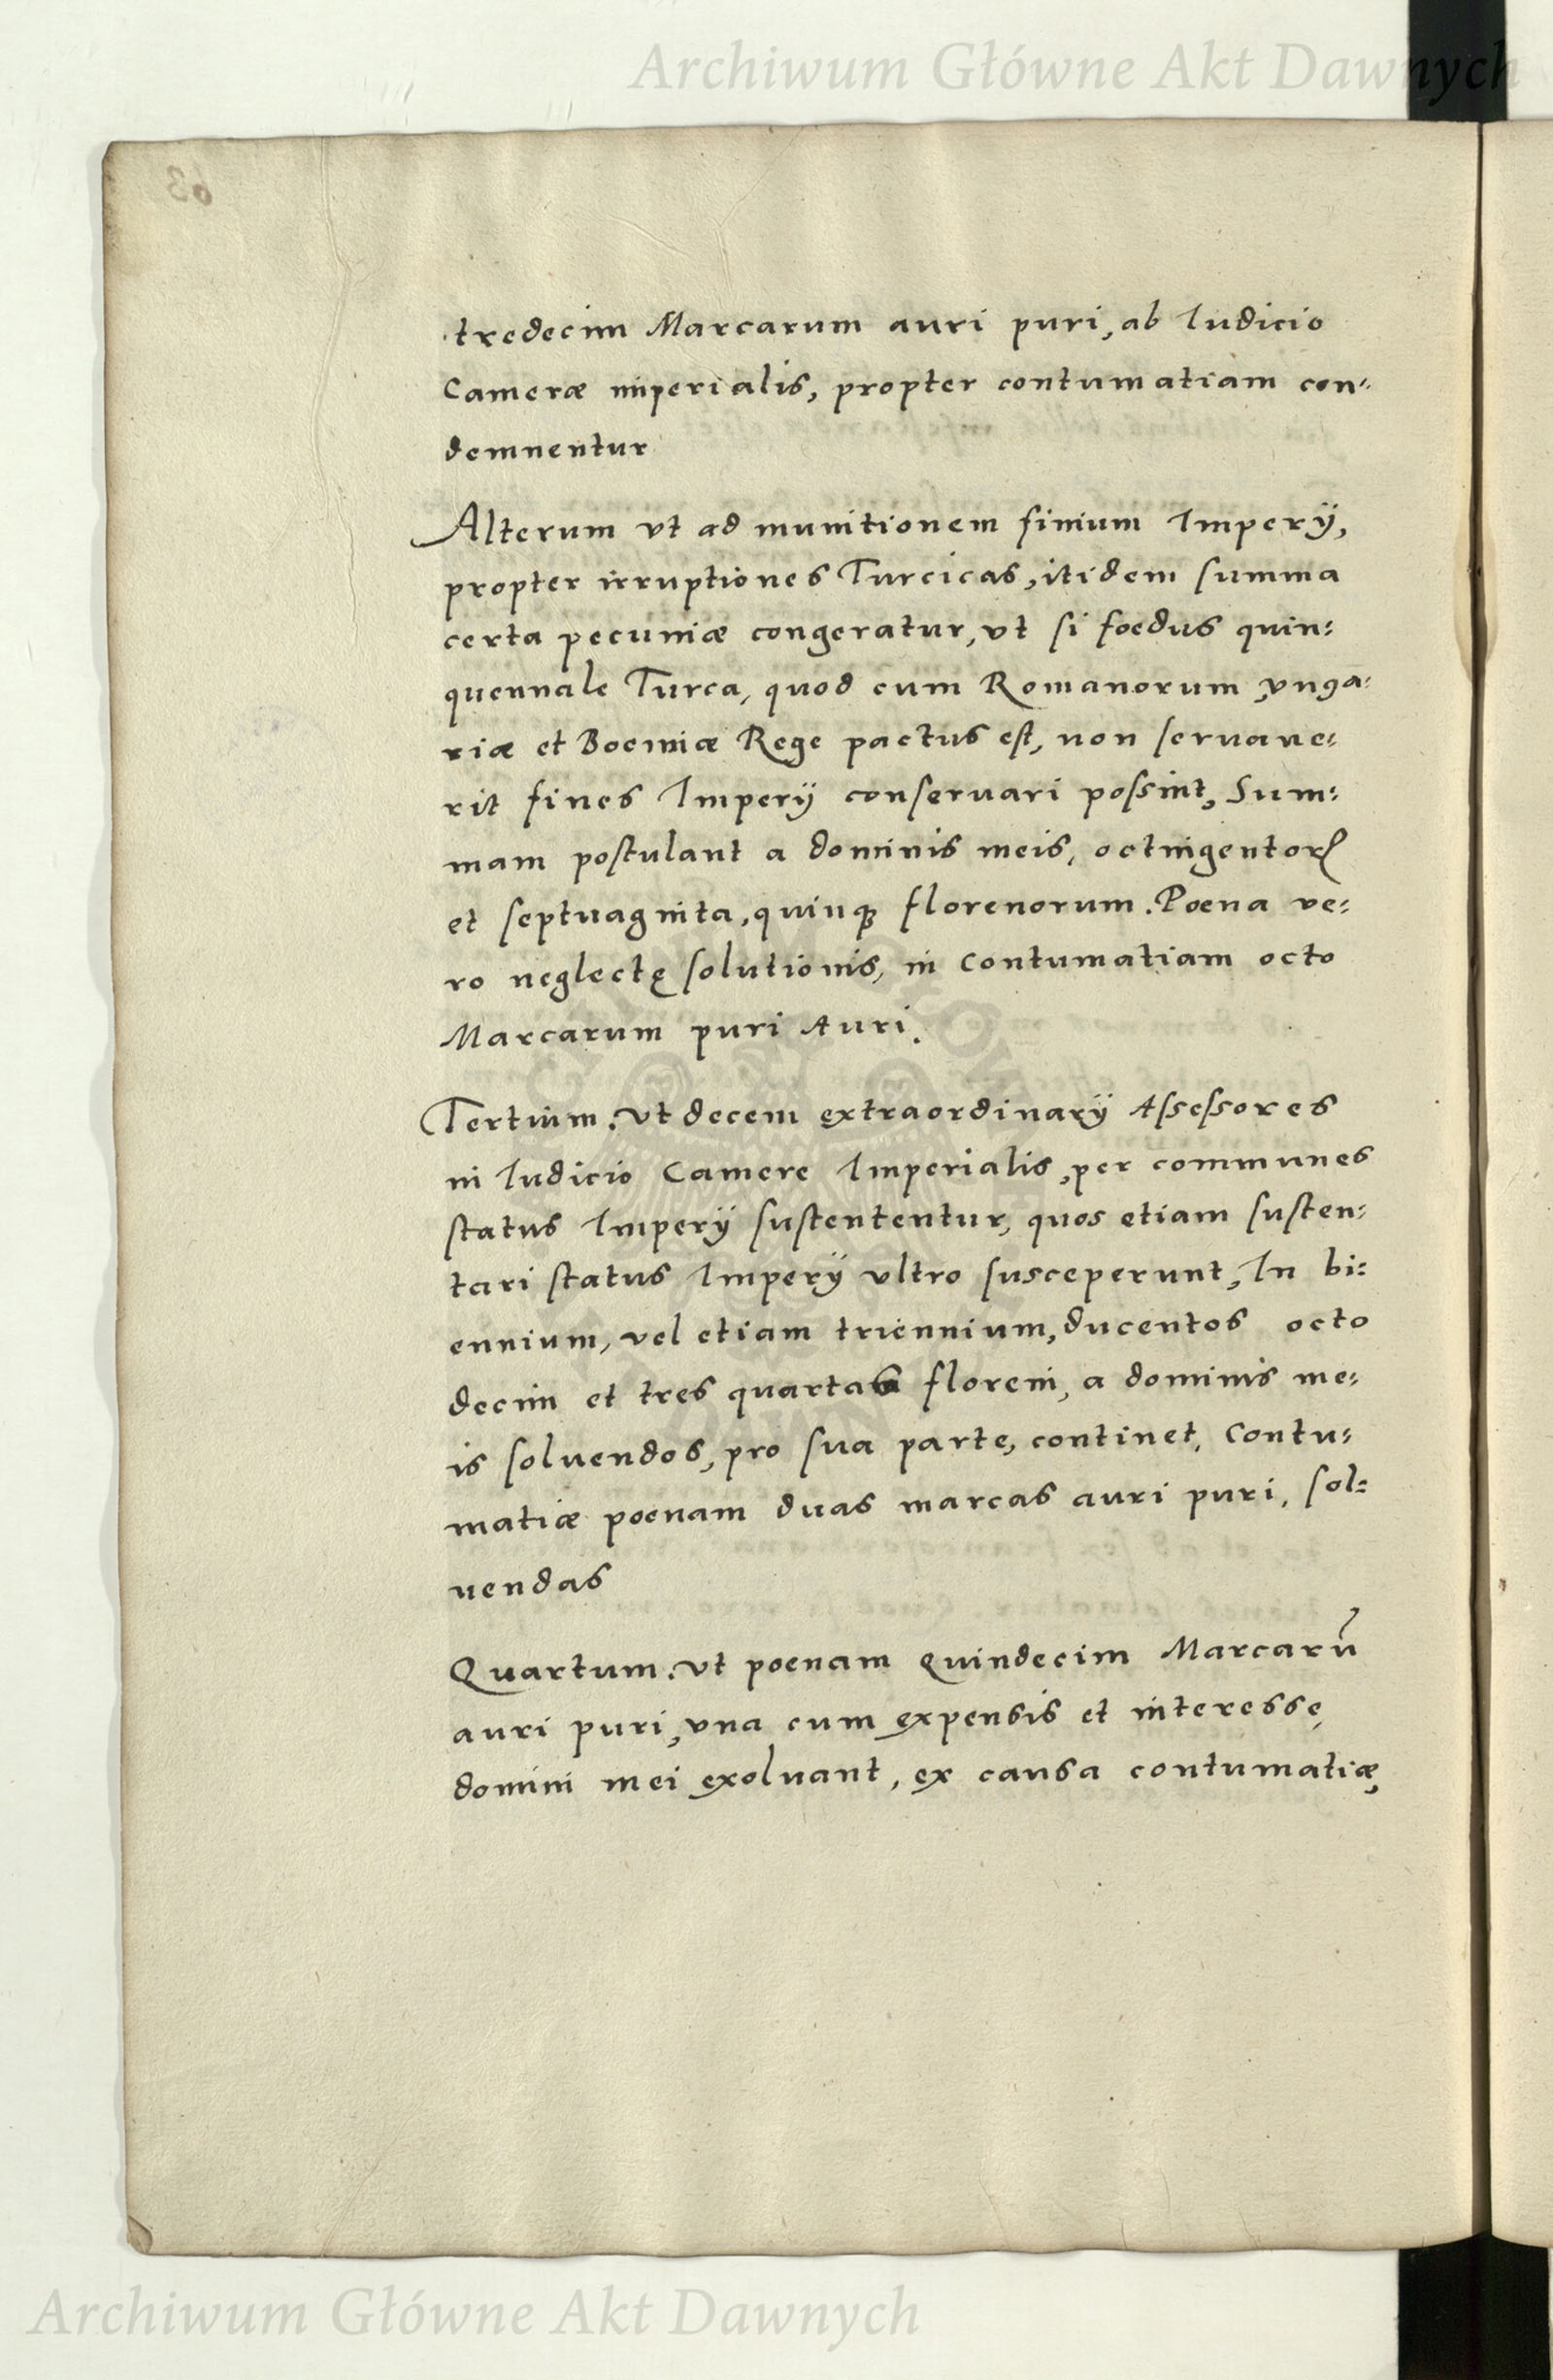 Archiwum Główne Akt Dawnych
63
tredecim Marcarum auri puri, ab Iudicio
Cameræ imperialis, propter contumatiam con=
demnentur
Alterum vt ad munitionem finium Imperÿ,
propter irruptiones Turcicas, itidem summa
certa pecuniæ congeratur, vt si foedus quin=
quennale Turca, quod cum Romanorum, vnga=
riæ et Boemiæ Rege pactus est, non seruaue=
rit fines Imperÿ conseruari possint, Sum=
mam postulant a dominis meis, octingentorꝝ
et septuaginta, quinqꝫ florenorum. Poena ve=
ro neglectę solutionis, in contumatiam octo
Marcarum puri Auri.
Tertium. vt decem extraordinarÿ Assessores
in Iudicio Camere Imperialis, per communes
status Imperÿ sustententur, quos etiam susten=
tari status Imperÿ vltro susceperunt, In bi=
ennium, vel etiam triennium, ducentos octo
decim et tres quartas floreni, a dominis me=
is soluendos, pro sua parte, continet, Contu=
matiæ poenam duas marcas auri puri, sol=
uendas
Quartum. vt poenam quindecim Marcarū
auri puri, vna cum expensis et interesse,
domini mei exoluant, ex causa contumatiæ,
Archiwum Główne Akt Dawnych